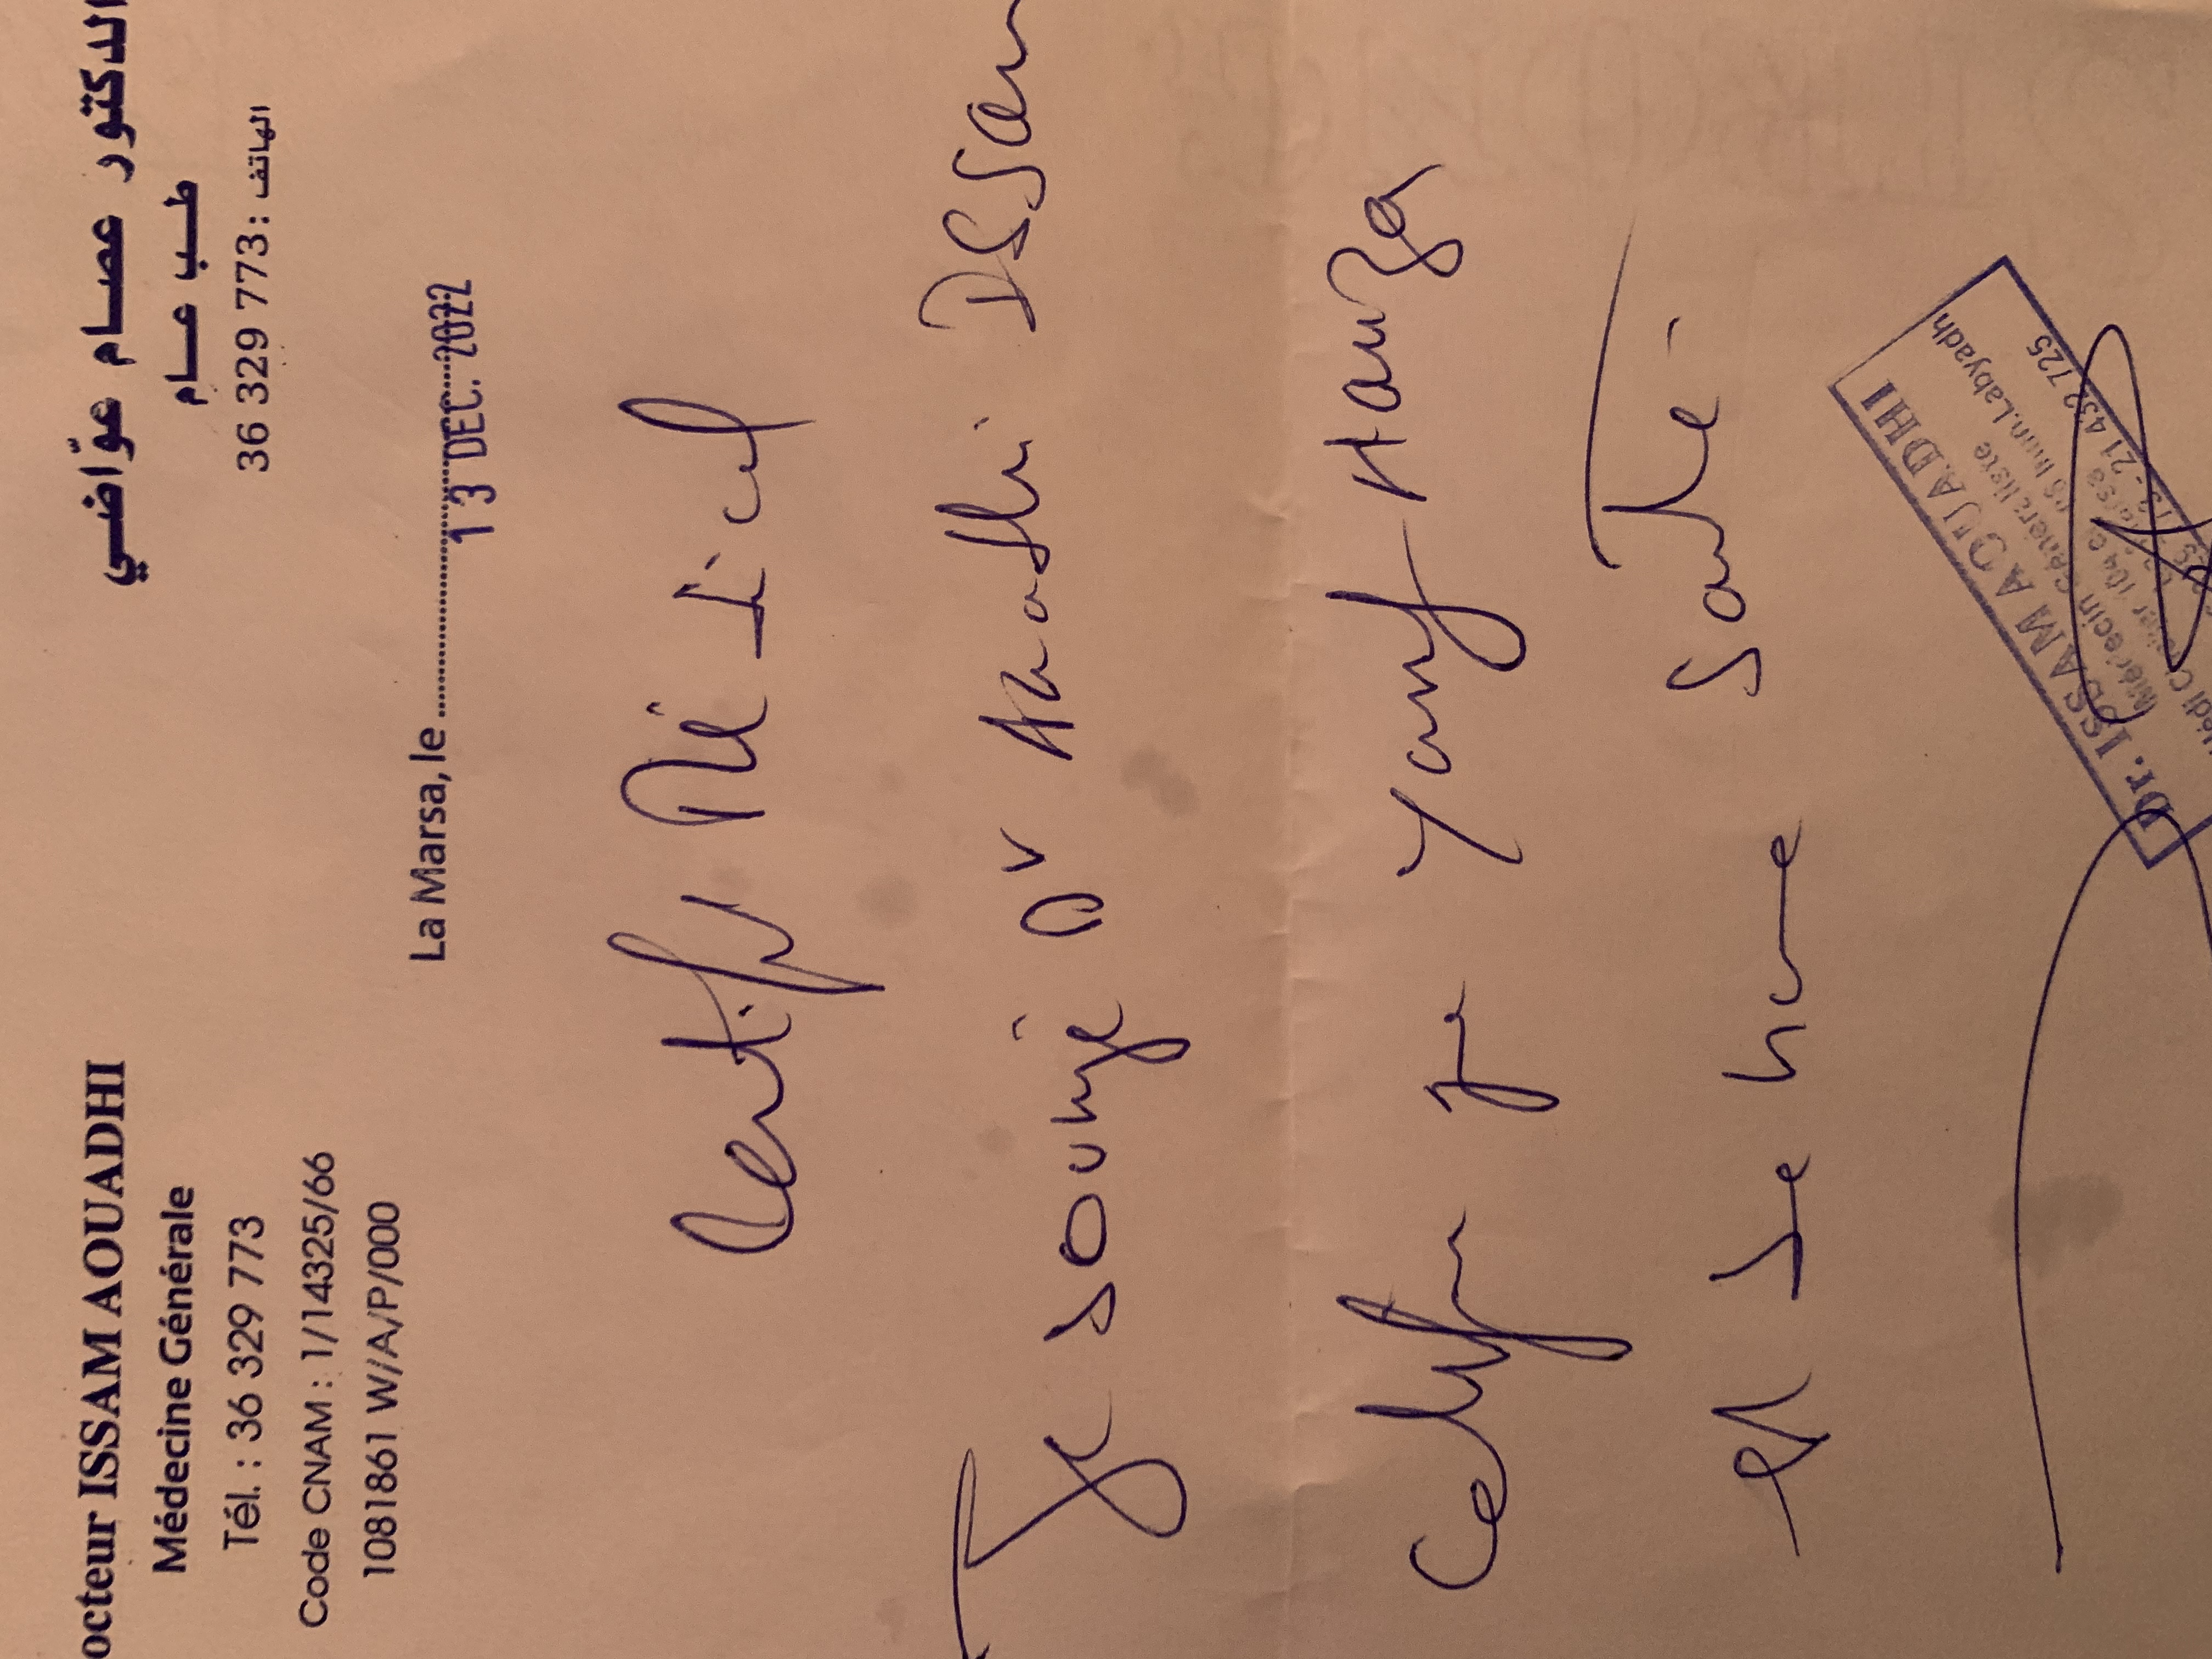 octeur ISSAM AOUADHI
Médecine Générale
Tél. : 36 329 773
Code CNAM : 1/14325/66
1081861 W/A/P/000
الدكتور عصام عوّاضي
طب عام
الهاتف : 36 329 773
La Marsa, le 13 DEC. 2022
Certificat Médical
Je sousigné Dr Aouadhi Issam
Certifie que Hamza
est de bonne santé.
Dr. ISSAM AOUADHI
Médecin Généraliste
21 432 725